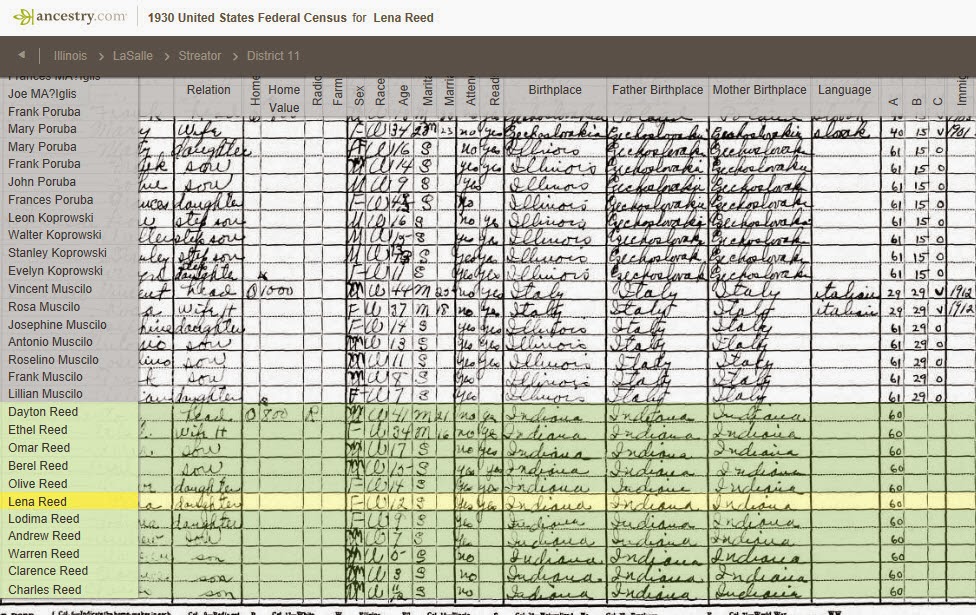 ancestry.com 1930 United States Federal Census for Lena Reed
Illinois LaSalle Streator District 11
Frances MA?Iglis
Relation Home Home Value Radio Farm Sex Race Age Marital Birthplace Father Birthplace Mother Birthplace Language A B C Immig
Joe MA?Iglis
Frank Poruba
Mary Poruba y Wife F W 34 M 23 no yes Czechoslovakia Czechoslovakia Czechoslovakia slovak 40 15 V 1901
Mary Poruba daughter F W 16 S no yes Illinois Czechoslovaki Czechoslovaki 61 15 0
Frank Poruba son M W 14 S yes yes Illinois Czechoslovaki Czechoslovaki 61 15 0
John Poruba son M W 9 S yes Illinois Czechoslovaki Czechoslovaki 61 15 0
Frances Poruba daughter F W S no Illinois Czechoslovaki Czechoslovaki 61 15 0
Leon Koprowski step son M W 16 S no yes Illinois Czechoslovaki Czechoslovaki 61 15 0
Walter Koprowski step son M W 15 S yes yes Illinois Czechoslovaki Czechoslovaki 61 15 0
Stanley Koprowski step son M W 13 S yes yes Illinois Czechoslovaki Czechoslovaki 61 15 0
Evelyn Koprowski step daughter F W 11 S yes yes Illinois Czechoslovaki Czechoslovaki 61 15 0
Vincent Muscilo head O 1000 M W 44 M 25 no yes Italy Italy Italy italian 29 29 V 1912
Rosa Muscilo Wife H F W 37 M 18 no yes Italy Italy Italy italian 29 29 V 1912
Josephine Muscilo daughter F W 14 S yes yes Illinois Italy Italy 61 29 0
Antonio Muscilo son M W 13 S yes yes Illinois Italy Italy 61 29 0
Roselino Muscilo son M W 11 S yes yes Illinois Italy Italy 61 29 0
Frank Muscilo son M W 8 S yes Illinois Italy Italy 61 29 0
Lillian Muscilo daughter F W 7 S yes Illinois Italy Italy 61 29 0
Dayton Reed head O 800 R M W 41 M 21 no yes Indiana Indiana Indiana 60
Ethel Reed Wife H F W 34 M 16 no yes Indiana Indiana Indiana 60
Omar Reed son M W 17 S no yes Indiana Indiana Indiana 60
Berel Reed son M W 15 S yes yes Indiana Indiana Indiana 60
Olive Reed daughter F W 14 S yes yes Indiana Indiana Indiana 60
Lena Reed daughter F W 12 S yes yes Indiana Indiana Indiana 60
Lodima Reed daughter F W 9 S yes Indiana Indiana Indiana 60
Andrew Reed son M W 7 S yes Indiana Indiana Indiana 60
Warren Reed son M W 5 S no Indiana Indiana Indiana 60
Clarence Reed son M W 3 S no Indiana Indiana Indiana 60
Charles Reed son M W S no Indiana Indiana Indiana 60